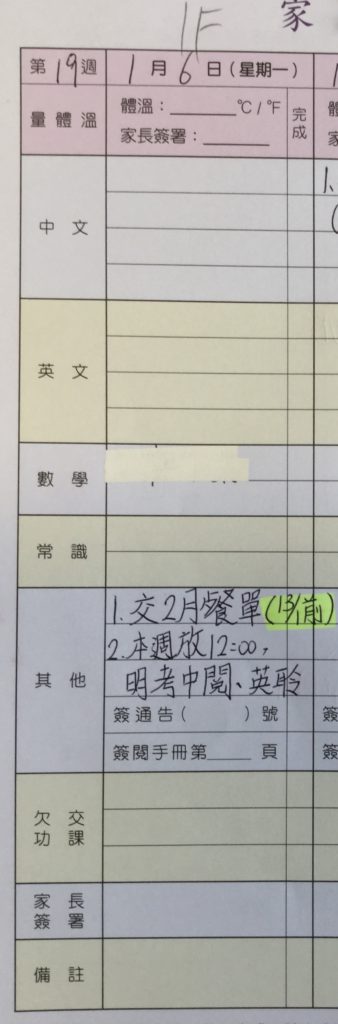 1F
家
第19週 1月6日(星期一)
量體溫 體溫:______ °C/°F 完成
家長簽署:______
中文
1.
英文
數學
常識
其他
1.交2月餐單(13/1前)
2.本週放12:00,
明考中閱、英聆
簽通告( )號
簽閱手冊第____頁
欠交功課
家長簽署
備註